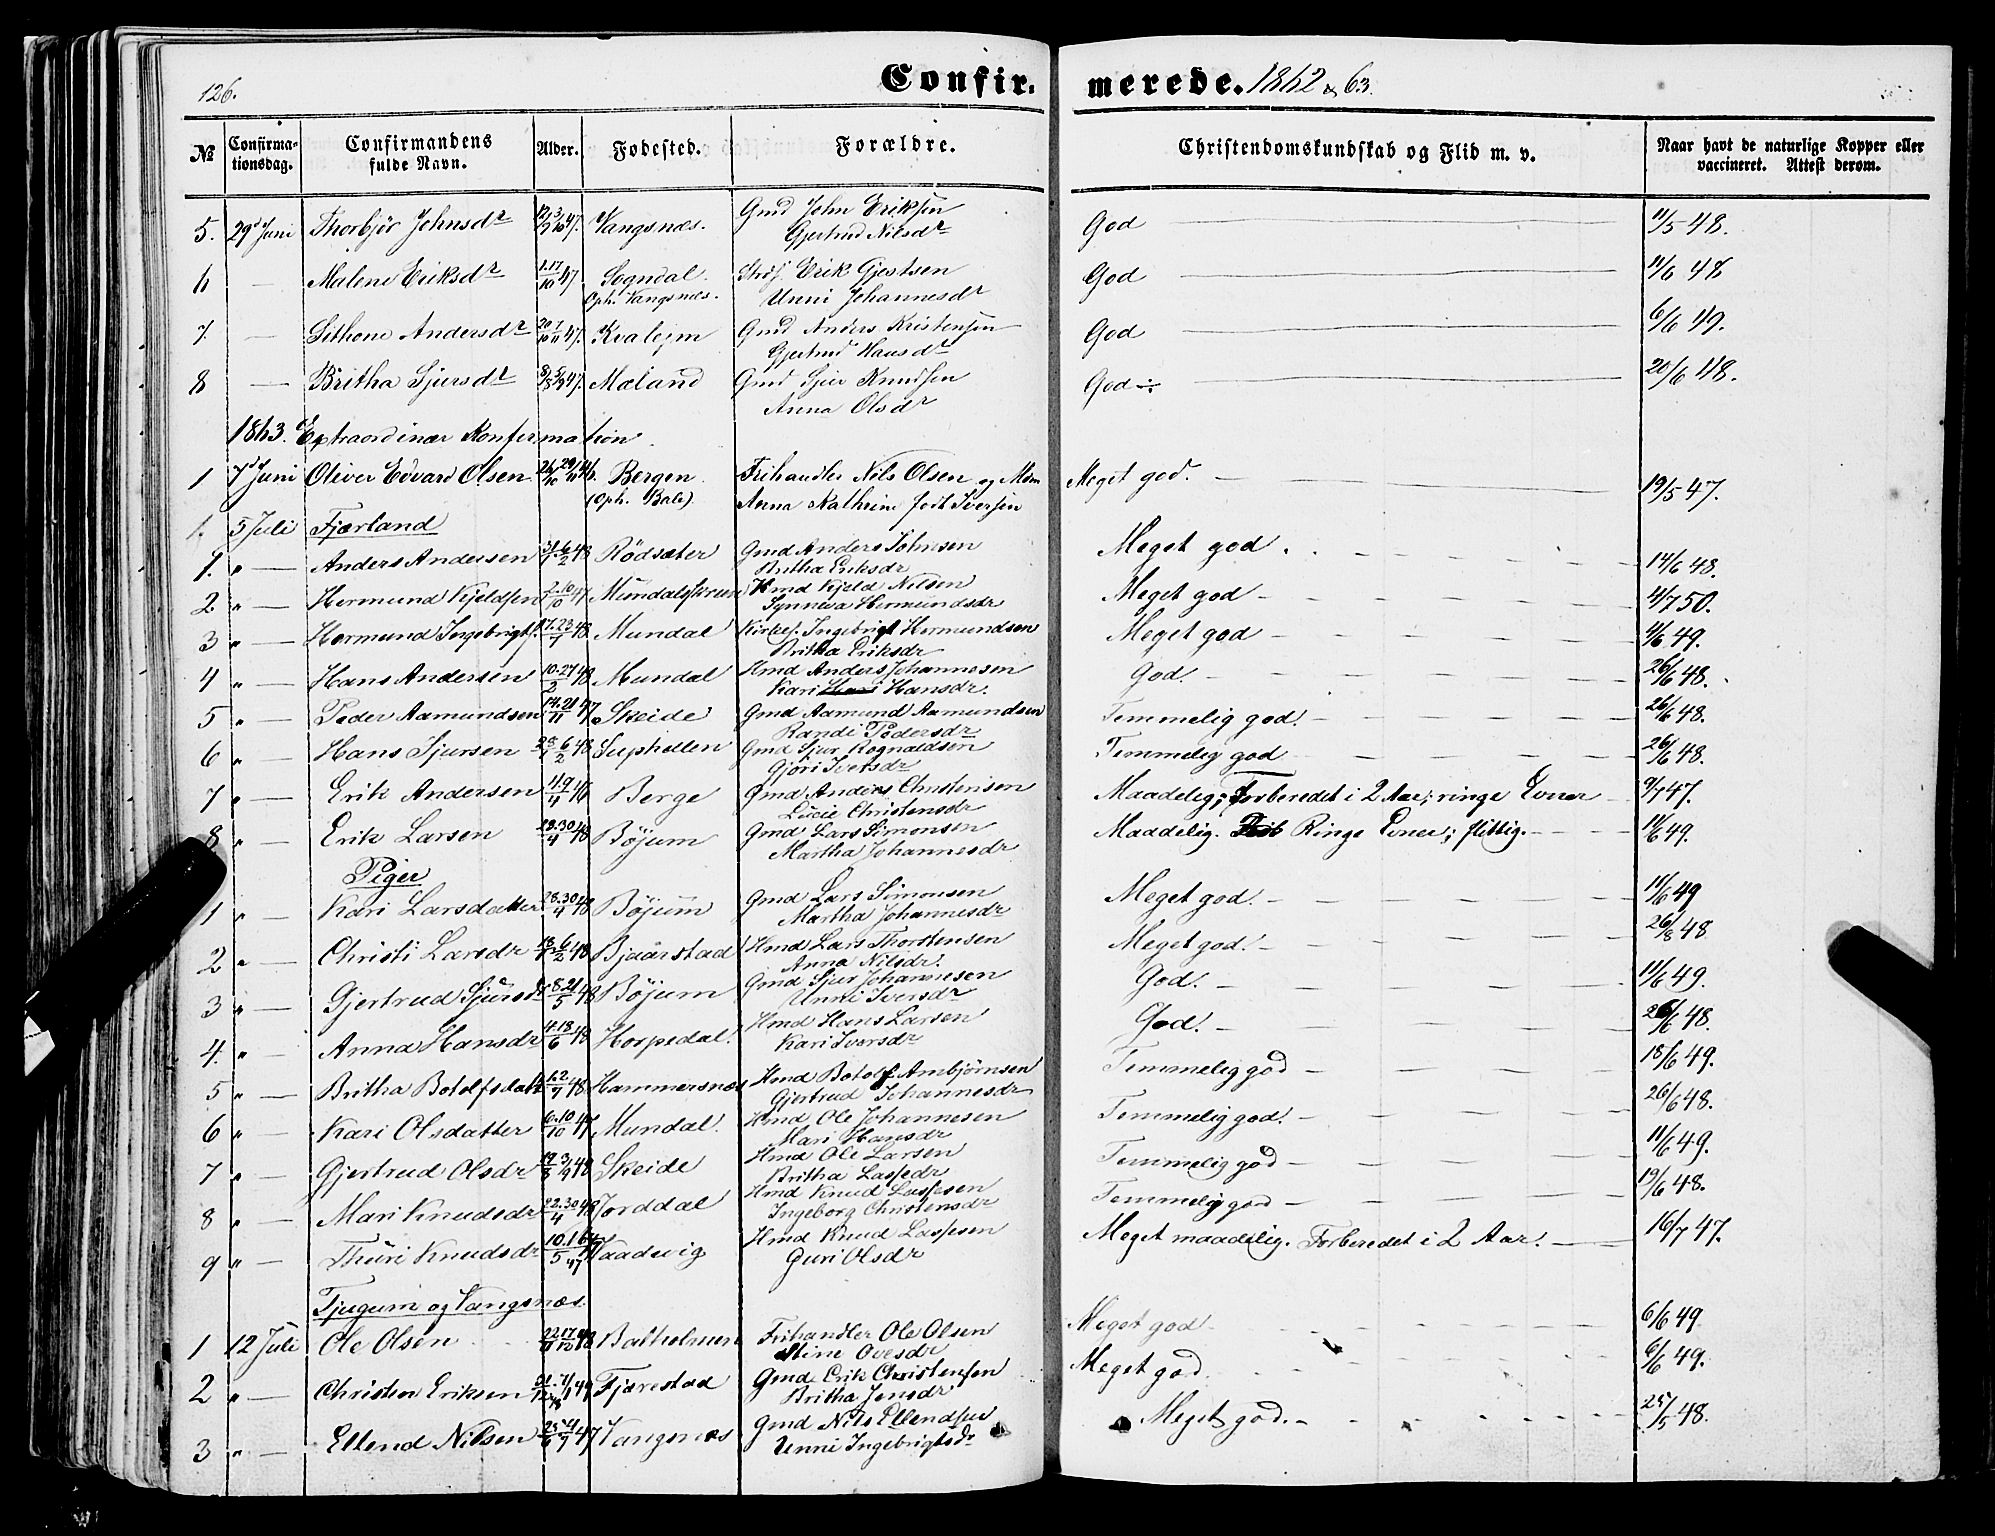 126.
Confir- merede. 1862 & 63.
No Confirma-tionsdag. Confirmandens fulde Navn. Alder. Fødested. Forældre. Christendomskundskab og Flid m. v. Naar havt de naturlige Kopper eller vaccineret. Attest derom.
5. 29d Juni Thorbjør Johnsdr 47. Vangsnæs. Gmd John Eriksen God 11/5 48.
Gjertrud Nilsdr
6 — Malene Eriksdr 1.17/10 47 Sogndal. Erik Gjestsen God 11/6 48
Oph. Vangsnæs. Unni Johannesdr
7. — Sithone Andersdr 47. Gmd Anders Kristensen God 6/6 49.
Gjertrud Hansdr
8 — Britha Sjursdr 47. Mæland Gmd Sjur Knudsen God ÷ 20/6 48.
Anna Olsdr
1863. Extraordinær Konfirmation.
1 7d Juni Oliver Edvard Olsen 46. Bergen. Frihandler Nils Olsen og Mdm Meget god. 19/5 47.
(Oph. Bale) Anna Kathrine født Iversen
1. 5 Juli Fjærland
1. " — Anders Andersen 31/1 6/2 48 Rödsæter Gmd Anders Johnsen Meget god. 14/6 48.
Britha Eriksdr
2 " — Hermund Kjeldsen 2.10/10 47 Mundalsgreen Hmd Kjeld Nilsen Meget god 4/7 50.
Synneva Hermundsdr
3 " — Hermund Ingebrigts. 17.23/4 48 Mundal Kirkes. Ingebrigt Hermundsen Meget god 11/6 49.
Britha Eriksdr
4 " — Hans Andersen 10.27/2 48 Mundal Hmd Anders Johannesen God. 26/6 48.
Kari Hansdr.
5 " — Peder Aamundsen 14.21/11 47 Skeide Gmd Aamund Aamundsen Temmelig god. 26/6 48.
Randi Pedersdr
6 " — Hans Sjursen 48 Suphellen Gmd Sjur Rognaldsen Temmelig god 26/6 48.
Gjöri Iversdr
7 " — Erik Andersen 46 Berge Gmd Anders Christensen Maadelig; Forberedet i 2 Aar; ringe Evner 9/7 47.
Lucie Christensdr
8 " — Erik Larsen 28.30/4 48 Böjum Gmd Lars Simonsen Maadelig. Ringe Evner; flittig. 11/6 49.
Martha Johannesdr
Piger
1 " — Kari Larsdatter 28.30/4 48 Böjum Gmd Lars Simonsen Meget god. 11/6 49
Martha Johannesdr
2 " — Christi Larsdr 48 Bjaarstad Hmd Lars Thorstensen Meget god. 26/8 48
Anna Nilsdr.
3 " — Gjertrud Sjursdr 8.21/5 48 Böjum Gmd Sjur Johannesen God. 11/6 49.
Unni Iversdr
4. " — Anna Hansdr 4.18/6 48 Horpedal. Hmd Hans Larsen God. 26/6 48.
Kari Iversdr
5 " — Britha Botolfsdatter 48 Hammersnæs Hmd Botolf Ambjörnsen Temmelig god 18/6 49.
Gjertrud Johannesdr
6 " — Kari Olsdatter 6.10/10 47 Mundal. Hmd Ole Johannesen Temmelig god. 26/6 48.
Mari Hansdr
7 " — Gjertrud Olsdr 48 Skeide Hmd Ole Larsen Temmelig god 11/6 49.
Britha Lassedr
8 " — Mari Knudsdr 22.30/4 48 Jorddal Hmd Knud Lassesen Temmelig god 19/6 48.
Ingeborg Christensdr
9 " — Thuri Knudsdr 10.16/5 47 Vaadevig Hmd Knud Lassesen Meget maadelig. Forberedet i 2 Aar. 16/7 47.
Guri Olsdr
Tjugum og Vangsnæs.
1 12 Juli Ole Olsen 48 Balholmen Frihandler Ole Olsen Meget god 6/6 49
Stine Ovesdr
2 " — Christen Eriksen Fjærestad Gmd Erik Christensen Meget god. 6/6 49.
Britha Jensdr
3 " — Ellend Nilsen 47 Vangsnæs Gmd Nils Ellendsen Meget god. 25/5 48.
Unni Ingebrigtsdr